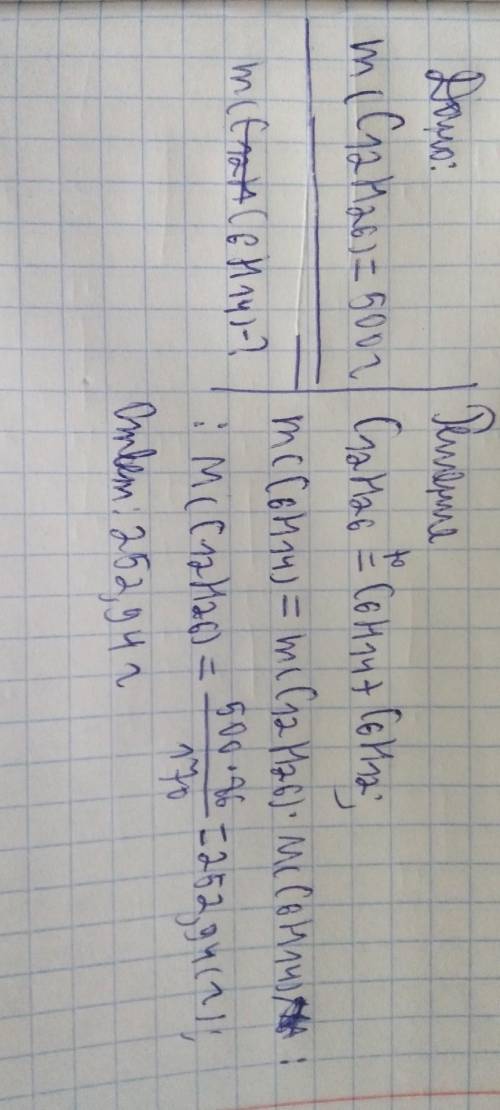 Дано:
m(C12H26)=500г
m(C6H14)-?
Решение
C12H26 =t° C6H14+C6H12;
m(C6H14)=m(C12H26)·M(C6H14):
:M(C12H26)=500·86/170=252,94(г);
Ответ: 252,94г